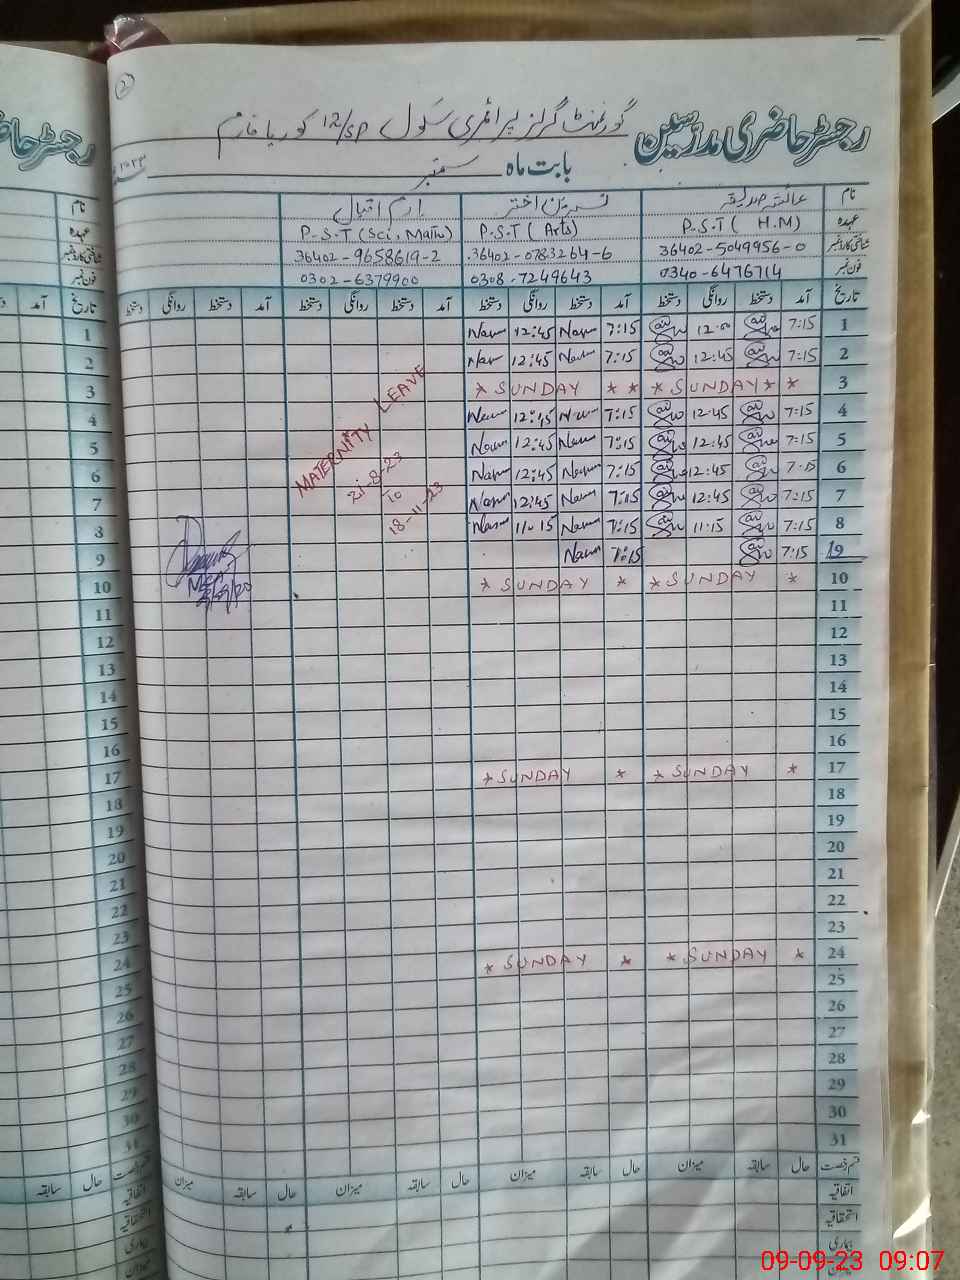 2
رجسٹر حاضری مدرسین گورنمنٹ گرلز پرائمری سکول 12/SP کوریا فارم
بابت ماہ ستمبر ۲۰۲۳
نام عائشہ صدیقہ نسرین اختر ارم اقبال
عہدہ P.S.T ( H.M) P.S.T ( Arts) P-S-T (Sci, Math)
شناختی کارڈ نمبر 36402-5049956-0 36402-0783264-6 36402-9658619-2
فون نمبر 0340-6476714 0308-7249643 0302-6379900
تاریخ آمد دستخط روانگی دستخط آمد دستخط روانگی دستخط آمد دستخط روانگی دستخط آمد دستخط روانگی دستخط
1 7:15 7:15 Nasr 12:45 Nasr
2 7:15 12:45 7:15 Nasr 12:45 Nasr
3 * SUNDAY * * * SUNDAY * *
4 7:15 12:45 7:15 Nasr 12:45 Nasr
5 7:15 12:45 7:15 Nasr 12:45 Nasr
6 7:15 12:45 7:15 Nasr 12:45 Nasr
7 7:15 12:45 7:15 Nasr 12:45 Nasr
8 7:15 11:15 7:15 Nasr 11:15 Nasr
9 7:15 7:15 Nasr
10 * SUNDAY * * SUNDAY *
MATERNITY LEAVE
21-8-23
to
18-11-23
11
12
13
14
15
16
17 * SUNDAY * * SUNDAY *
18
19
20
21
22
23
24 * SUNDAY * * SUNDAY *
25
26
27
28
29
30
31
قسم رخصت حال سابقہ میزان حال سابقہ میزان حال سابقہ میزان حال سابقہ میزان
اتفاقیہ
استحقاقیہ
بیماری
میزان
رجسٹر حاضری
نام
عہدہ
شناختی کارڈ نمبر
فون نمبر
تاریخ آمد دستخط
1
2
3
4
5
6
7
8
9
10
11
12
13
14
15
16
17
18
19
20
21
22
23
24
25
26
27
28
29
30
31
قسم رخصت حال سابقہ
اتفاقیہ
استحقاقیہ
بیماری
میزان
09-09-23 09:07